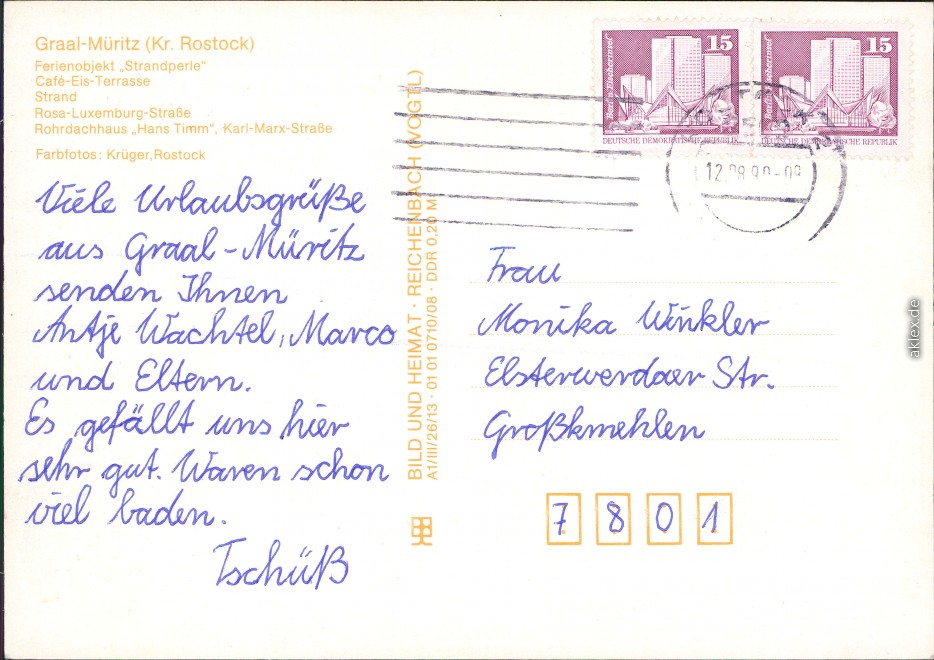 Graal-Müritz (Kr. Rostock)
Ferienobjekt „Strandperle"
Café-Eis-Terrasse
Strand
Rosa-Luxemburg-Straße
Rohrdachhaus „Hans Timm", Karl-Marx-Straße
Farbfotos: Krüger, Rostock
Viele Urlaubsgrüße
aus Graal-Müritz
senden Ihnen
Antje Wachtel, Marco
und Eltern.
Es gefällt uns hier
sehr gut. Waren schon
viel baden.
Tschüß
BILD UND HEIMAT · REICHENBACH (VOGTL)
A1/III/26/13 · 01 01 0710/08 · DDR 0,20 M
15
Berlin, Fischerinsel
DEUTSCHE DEMOKRATISCHE REPUBLIK
15
DEUTSCHE DEMOKRATISCHE REPUBLIK
Frau
Monika Winkler
Elsterwerdaer Str.
Großkmehlen
7 8 0 1
aklex.de